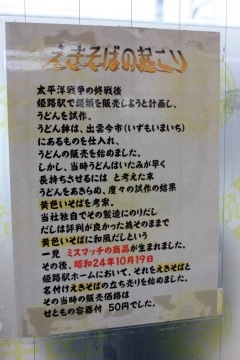 えきそばの起こり
太平洋戦争の終戦後
姫路駅で麺類を販売しようと計画し、
うどんを試作。
うどん鉢は、出雲今市(いずもいまいち)
にあるものを仕入れ、
うどんの販売を始めました。
しかし、当時うどんはいたみが早く
長持ちさせるには と考えた末
うどんをあきらめ、度々の試作の結果
黄色いそばを考案。
当社独自でその製造にのりだし
だしは評判が良かった為そのままで
黄色いそばに和風だしという
一見 ミスマッチの商品が生まれました。
その後、昭和24年10月19日
姫路駅ホームにおいて、それをえきそばと
名付けえきそばの立ち売りを始めました。
その当時の販売価格は
せともの容器付 50円でした。